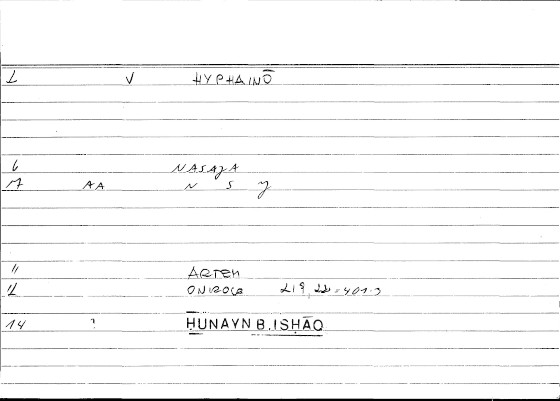 1 V HYPHAINŌ
6 NASAJA
17 AA N S J
11 ARTEM
12 ONIROCR 219, 22 = 401-2
14 ? HUNAYN B. ISHĀQ